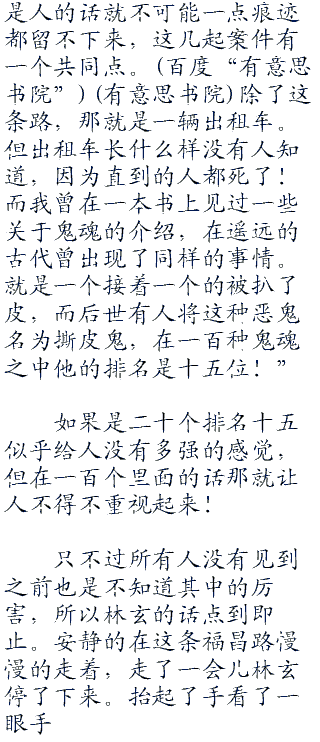 是人的话就不可能一点痕迹
都留不下来，这几起案件有
一个共同点。(百度“有意思
书院”)(有意思书院)除了这
条路，那就是一辆出租车。
但出租车长什么样没有人知
道，因为直到的人都死了！
而我曾在一本书上见过一些
关于鬼魂的介绍，在遥远的
古代曾出现了同样的事情。
就是一个接着一个的被扒了
皮，而后世有人将这种恶鬼
名为撕皮鬼，在一百种鬼魂
之中他的排名是十五位！”
如果是二十个排名十五
似乎给人没有多强的感觉，
但在一百个里面的话那就让
人不得不重视起来！
只不过所有人没有见到
之前也是不知道其中的厉
害，所以林玄的话点到即
止。安静的在这条福昌路慢
慢的走着，走了一会儿林玄
停了下来。抬起了手看了一
眼手